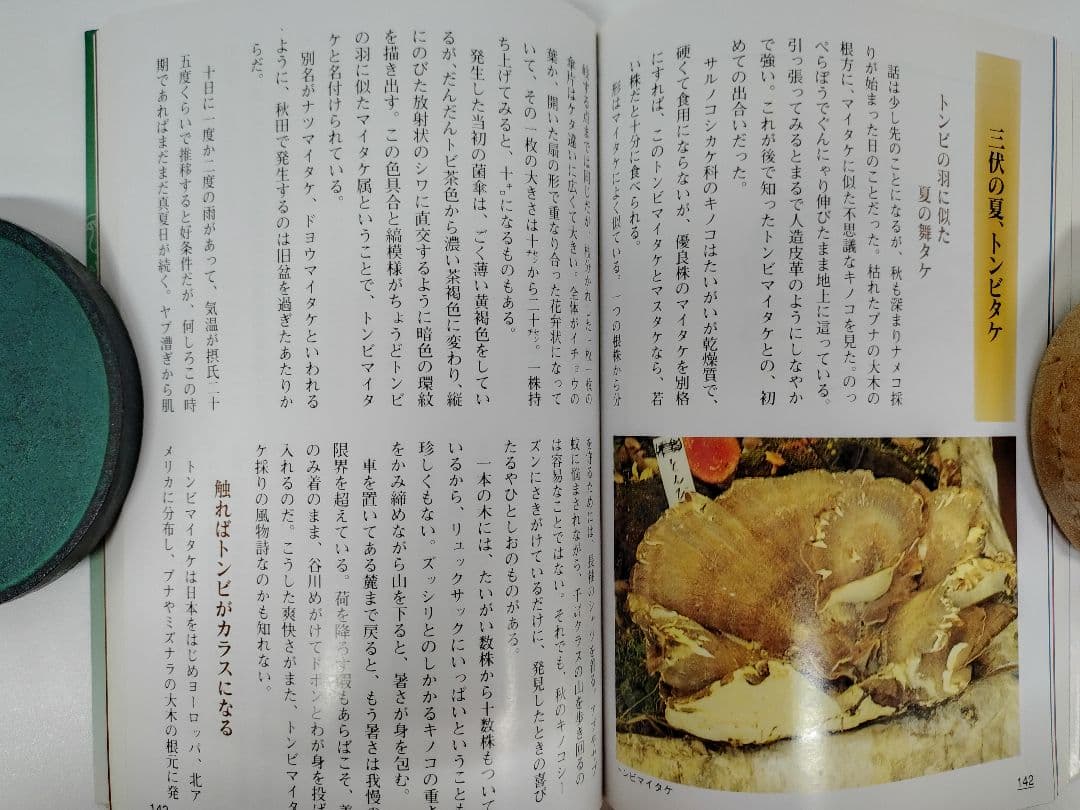 三伏の夏、トンビタケ
トンビの羽に似た
夏の舞タケ
話は少し先のことになるが、秋も深まりナメコ採
りが始まった日のことだった。枯れたブナの大木の
根方に、マイタケに似た不思議なキノコを見た。のっ
ぺらぼうでぐんにゃり伸びたまま地上に這っている。
引っ張ってみるとまるで人造皮革のようにしなやか
で強い。これが後で知ったトンビマイタケとの、初
めての出合いだった。
サルノコシカケ科のキノコはたいがいが乾燥質で、
硬くて食用にならないが、優良株のマイタケを別格
にすれば、このトンビマイタケとマスタケなら、若
い株だと十分に食べられる。
形はマイタケによく似ている。一つの根株から分
トンビマイタケ
142
岐する点までは同じだが、枝分かれした一枚一枚の
傘片はケタ違いに広くて大きい。全体がイチョウの
葉か、開いた扇の形で重なり合った花弁状になって
いて、その一枚の大きさは十センから二十セン。一株持
ち上げてみると、十キロになるものもある。
発生した当初の菌傘は、ごく薄い黄褐色をしてい
るが、だんだんトビ茶色から濃い茶褐色に変わり、縦
にのびた放射状のシワに直交するように暗色の環紋
を描き出す。この色具合と縞模様がちょうどトンビ
の羽に似たマイタケ属ということで、トンビマイタ
ケと名付けられている。
別名がナツマイタケ、ドヨウマイタケといわれる
ように、秋田で発生するのは旧盆を過ぎたあたりか
らだ。
十日に一度か二度の雨があって、気温が摂氏二十
五度くらいで推移すると好条件だが、何しろこの時
期であればまだまだ真夏日が続く。ヤブ漕ぎから肌
を守るためには、長袖のシャツを着る。
蚊に悩まされながら、千メートルクラスの山を歩き回るの
は容易なことではない。それでも、秋のキノコシー
ズンにさきがけているだけに、発見したときの喜び
たるやひとしおのものがある。
一本の木には、たいがい数株から十数株もついて
いるから、リュックサックにいっぱいということも
珍しくもない。ズッシリとのしかかるキノコの重さ
をかみ締めながら山を下ると、暑さが身を包む。
車を置いてある麓まで戻ると、もう暑さは我慢の
限界を超えている。荷を降ろす暇もあらばこそ、着
のみ着のまま、谷川めがけてドボンとわが身を投げ
入れるのだ。こうした爽快さがまた、トンビマイタ
ケ採りの風物詩なのかも知れない。
触ればトンビがカラスになる
トンビマイタケは日本をはじめヨーロッパ、北ア
メリカに分布し、ブナやミズナラの大木の根元に発
143